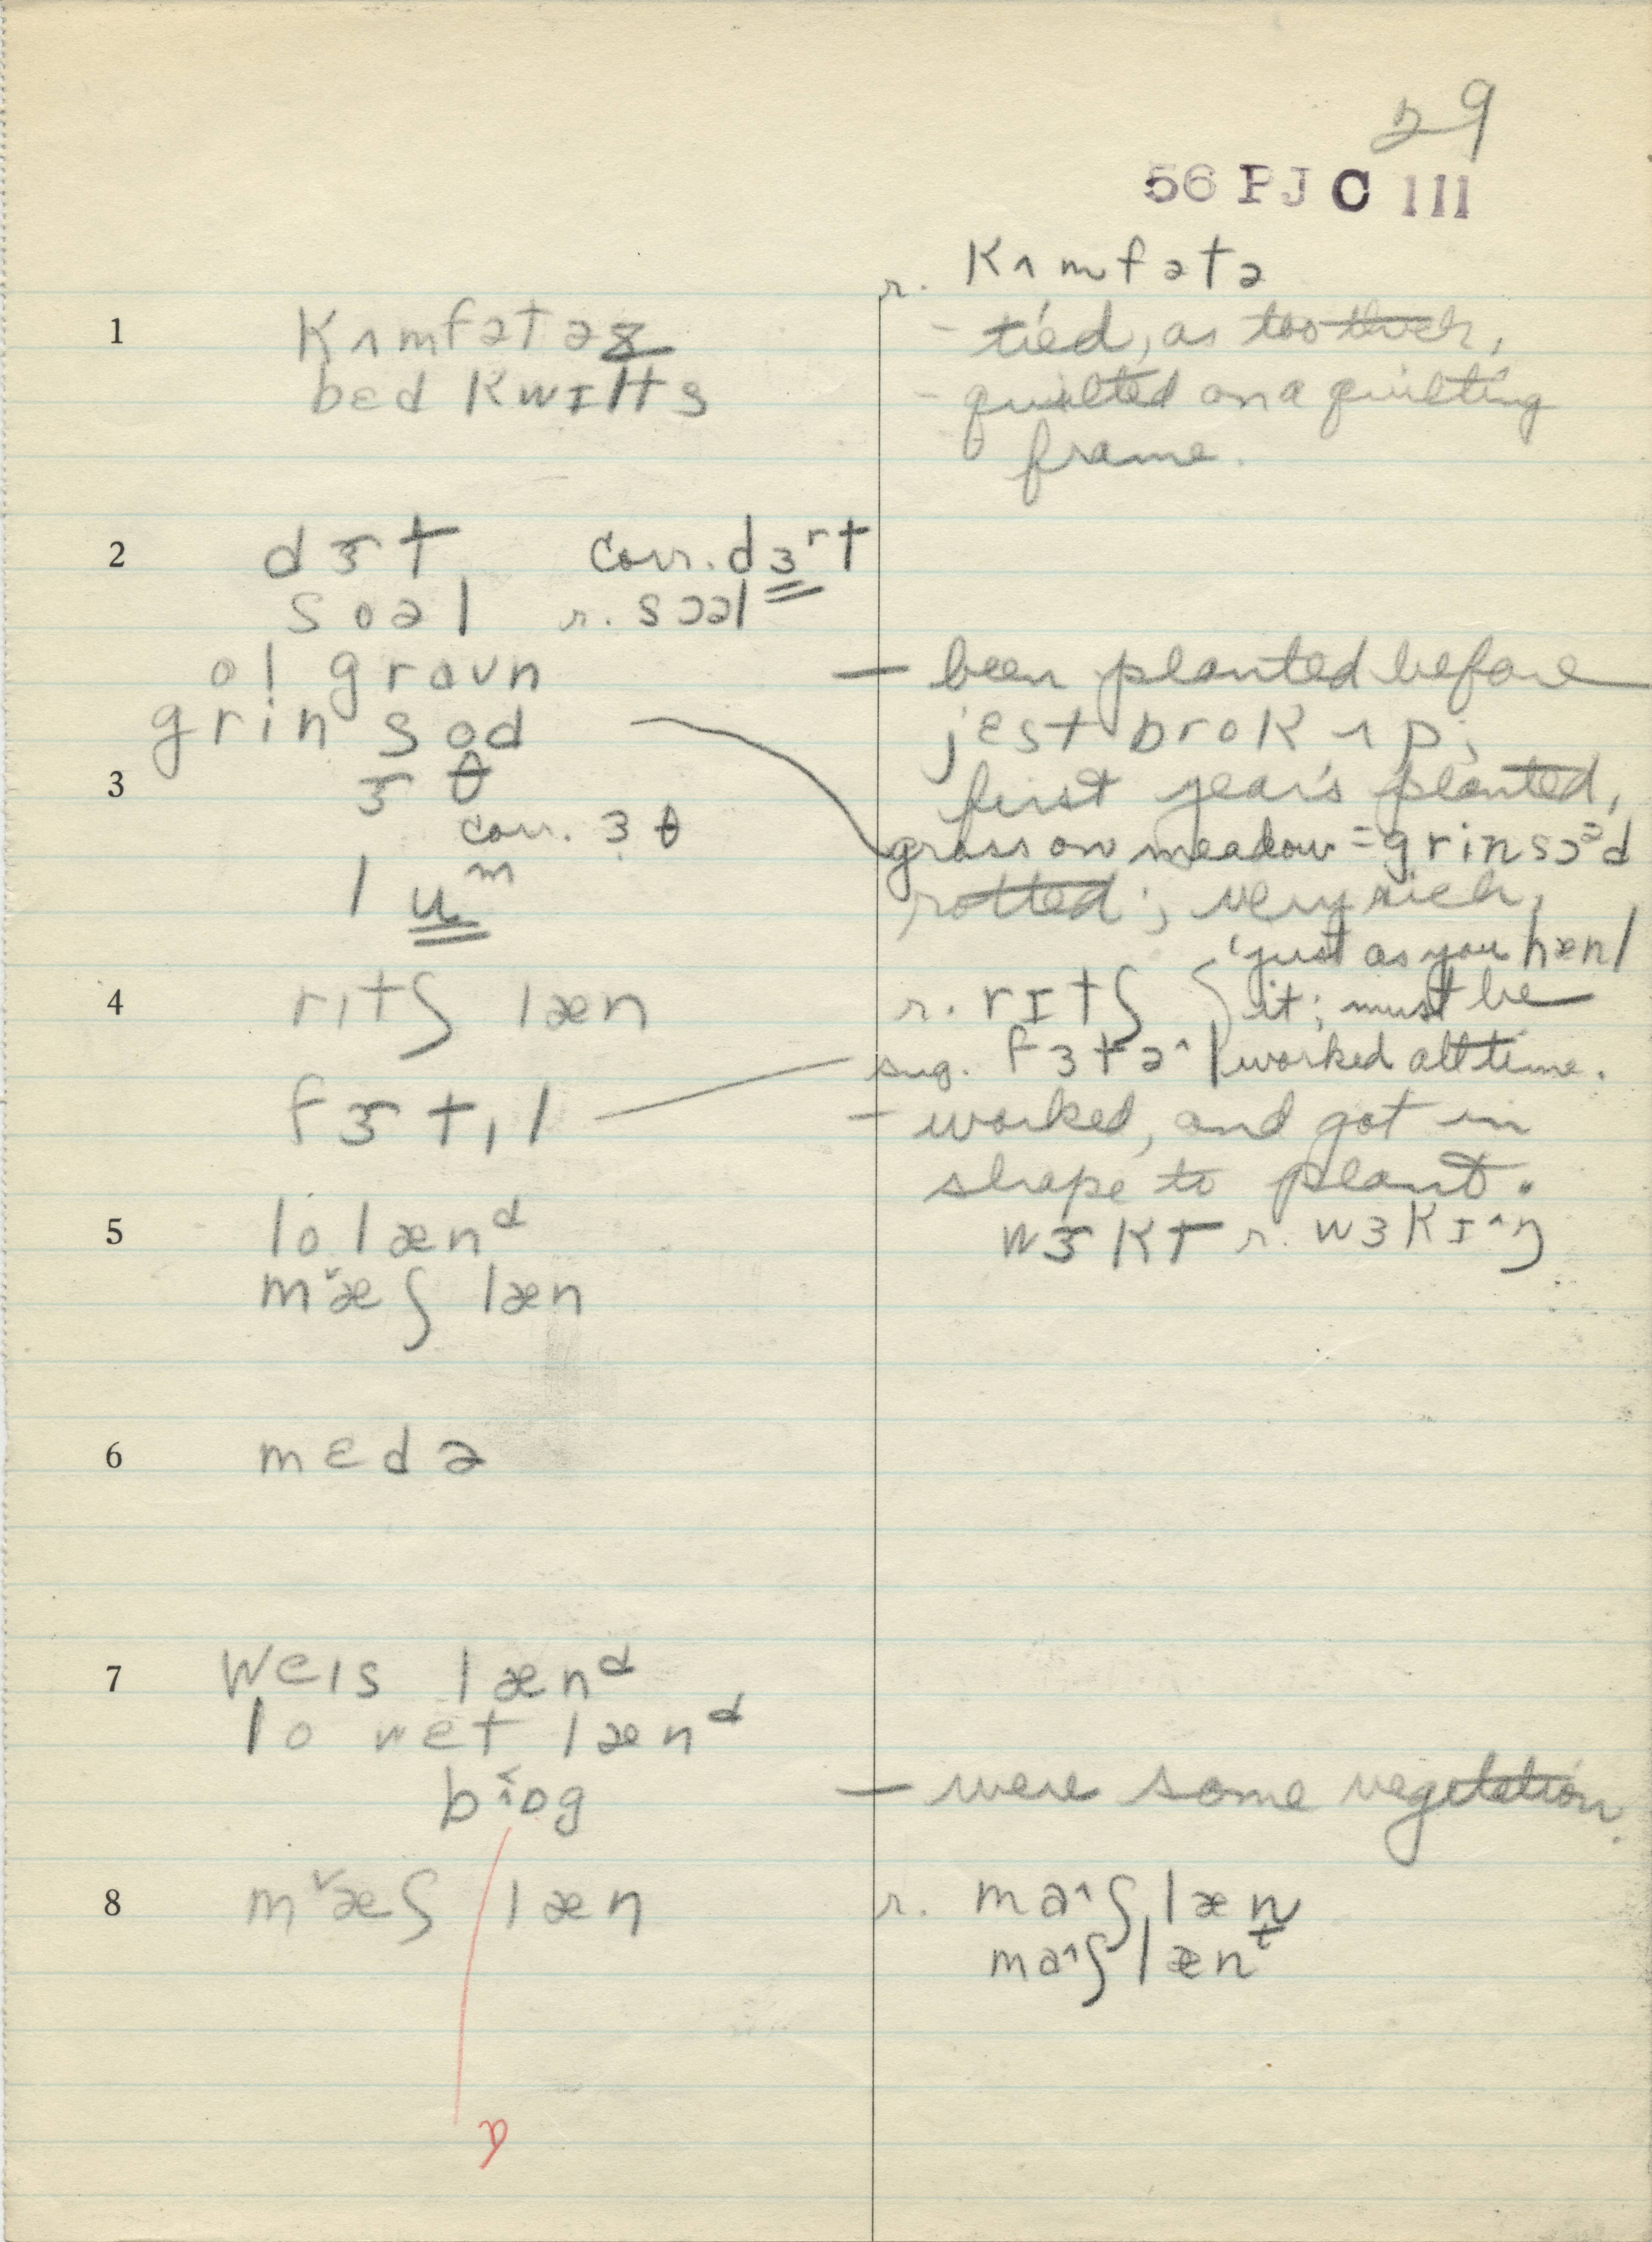 29
56 P J C III
r. Kʌmfətə
1 Kʌmfətəz
- tied, as too thick,
bɛd Kwɪlts
- quilted on a quilting
frame.
2 dɜt corr. dɜʳt
soəl r. sɔəl
ol graʊn
— been planted before
grin sɒd
jɛst brok ʌp;
3 ɜθ
first year's planted,
corr. ɜθ
grass on meadow = grin sɔᵊd
luᵐ
rotted; very rich,
'just as you hænl
4 rɪtʃ læn
r. rɪtʃ
it; must be
sug. fɜtə^l
worked all time.
fɜtɪl
- worked, and got in
shape to plant.
5 lo lænᵈ
wɜKt r. wɜKɪ^ŋ
mᵛæʃ læn
6 mɛdə
7 weɪs lænᵈ
lo wɛt lænᵈ
bɒg
— were some vegetation.
8 mᵛæʃ læn
r. ma^ʃ læn
ma^ʃ lænᵗ